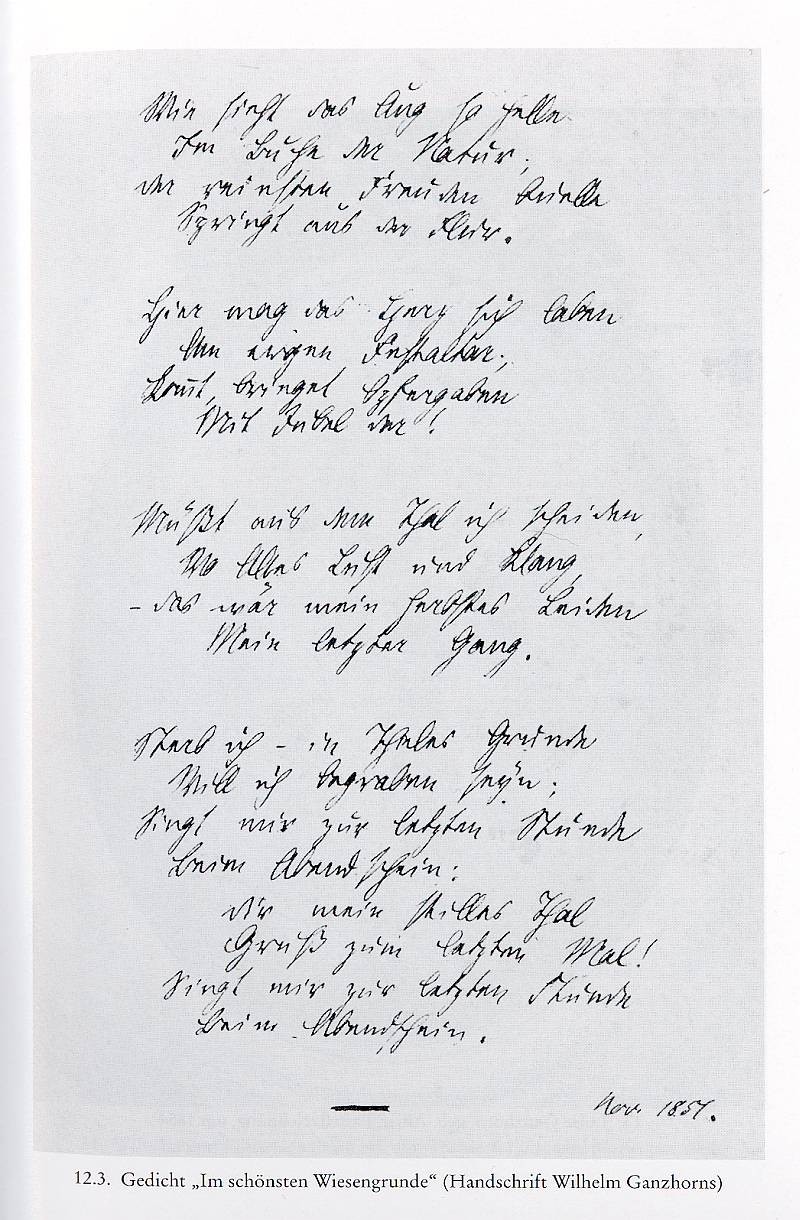 Wie sieht das Aug so helle
Im Buche der Natur,
der reinsten Freuden Quelle
Springt aus der Flur.
Hier mag das Herz sich laben
Am ewgen Festaltar;
Komt, bringet Opfergaben
Mit Jubel dar!
Müßt aus dem Thal ich scheiden,
Wo Alles Lust und Klang,
– das wär mein herbstes Leiden
Mein letzter Gang.
Sterb ich – in Thales Grunde
Will ich begraben seyn;
Singt mir zur letzten Stunde
Beim Abendschein:
dir mein stilles Thal
Gruß zum letzten Mal!
Singt mir zur letzten Stunde
Beim Abendschein.
Nov. 1851.
12.3. Gedicht „Im schönsten Wiesengrunde“ (Handschrift Wilhelm Ganzhorns)